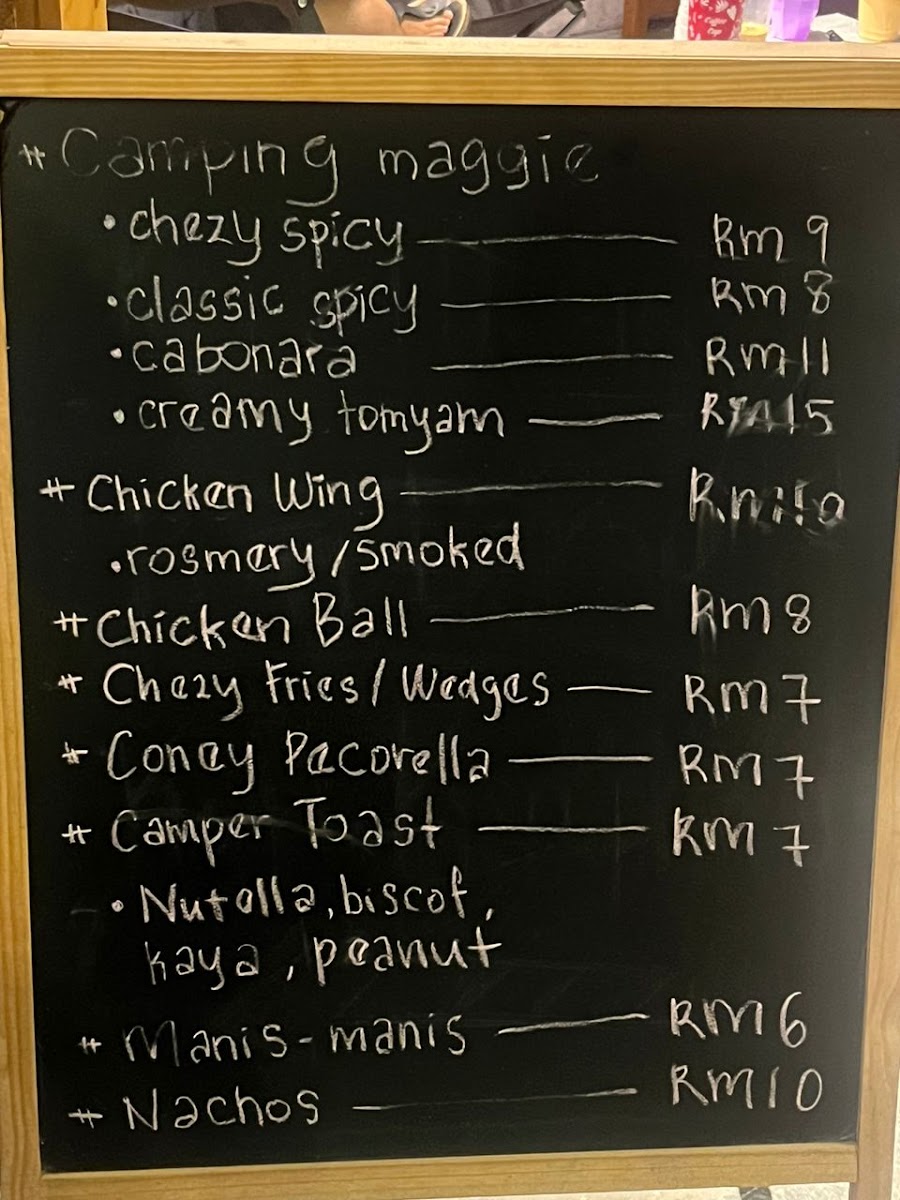 # Camping maggie
• chezy spicy — Rm 9
• classic spicy — Rm 8
• cabonara — Rm 11
• creamy tomyam — Rm 15
# Chicken Wing — Rm 10
• rosmery / smoked
# Chicken Ball — Rm 8
# Chezy Fries / Wedges — Rm 7
# Coney Pecorella — Rm 7
# Camper Toast — Rm 7
• Nutella, biscof,
kaya, peanut
# Manis-manis — Rm 6
# Nachos — Rm 10